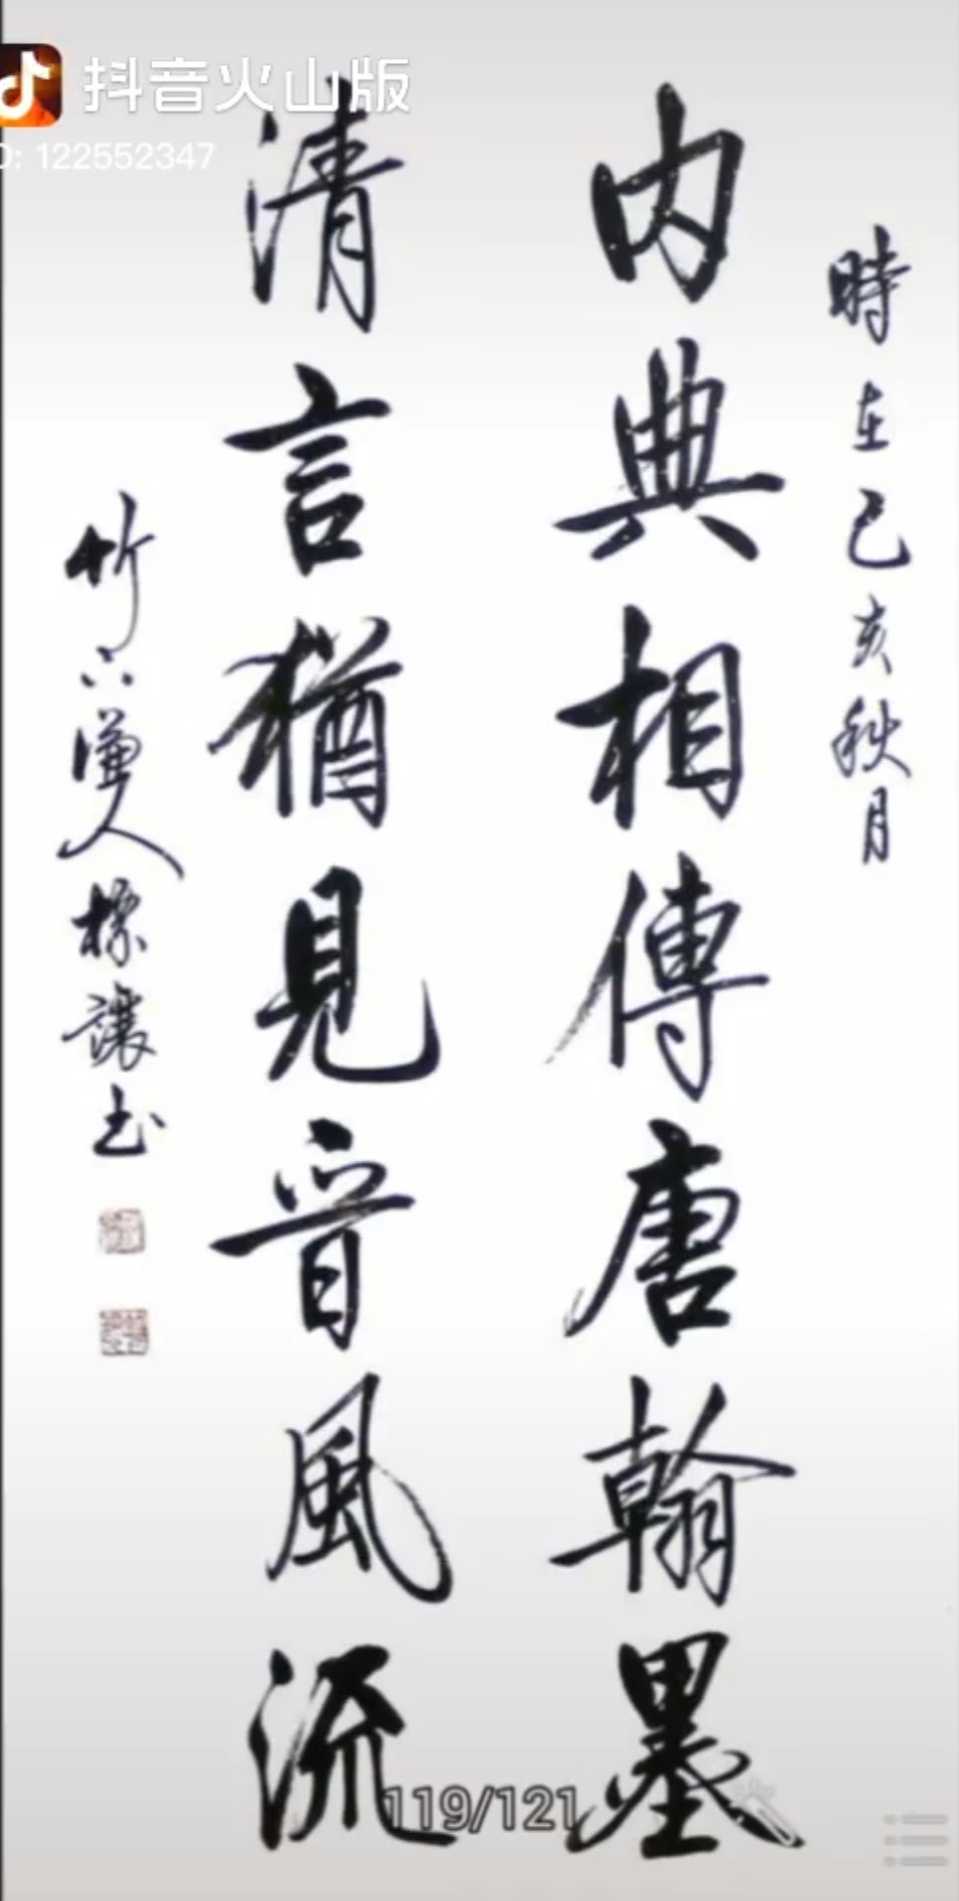 抖音火山版
D: 122552347
時在己亥秋月
内典相傳唐翰墨
清言猶見晉風流
竹人讓书
119/121